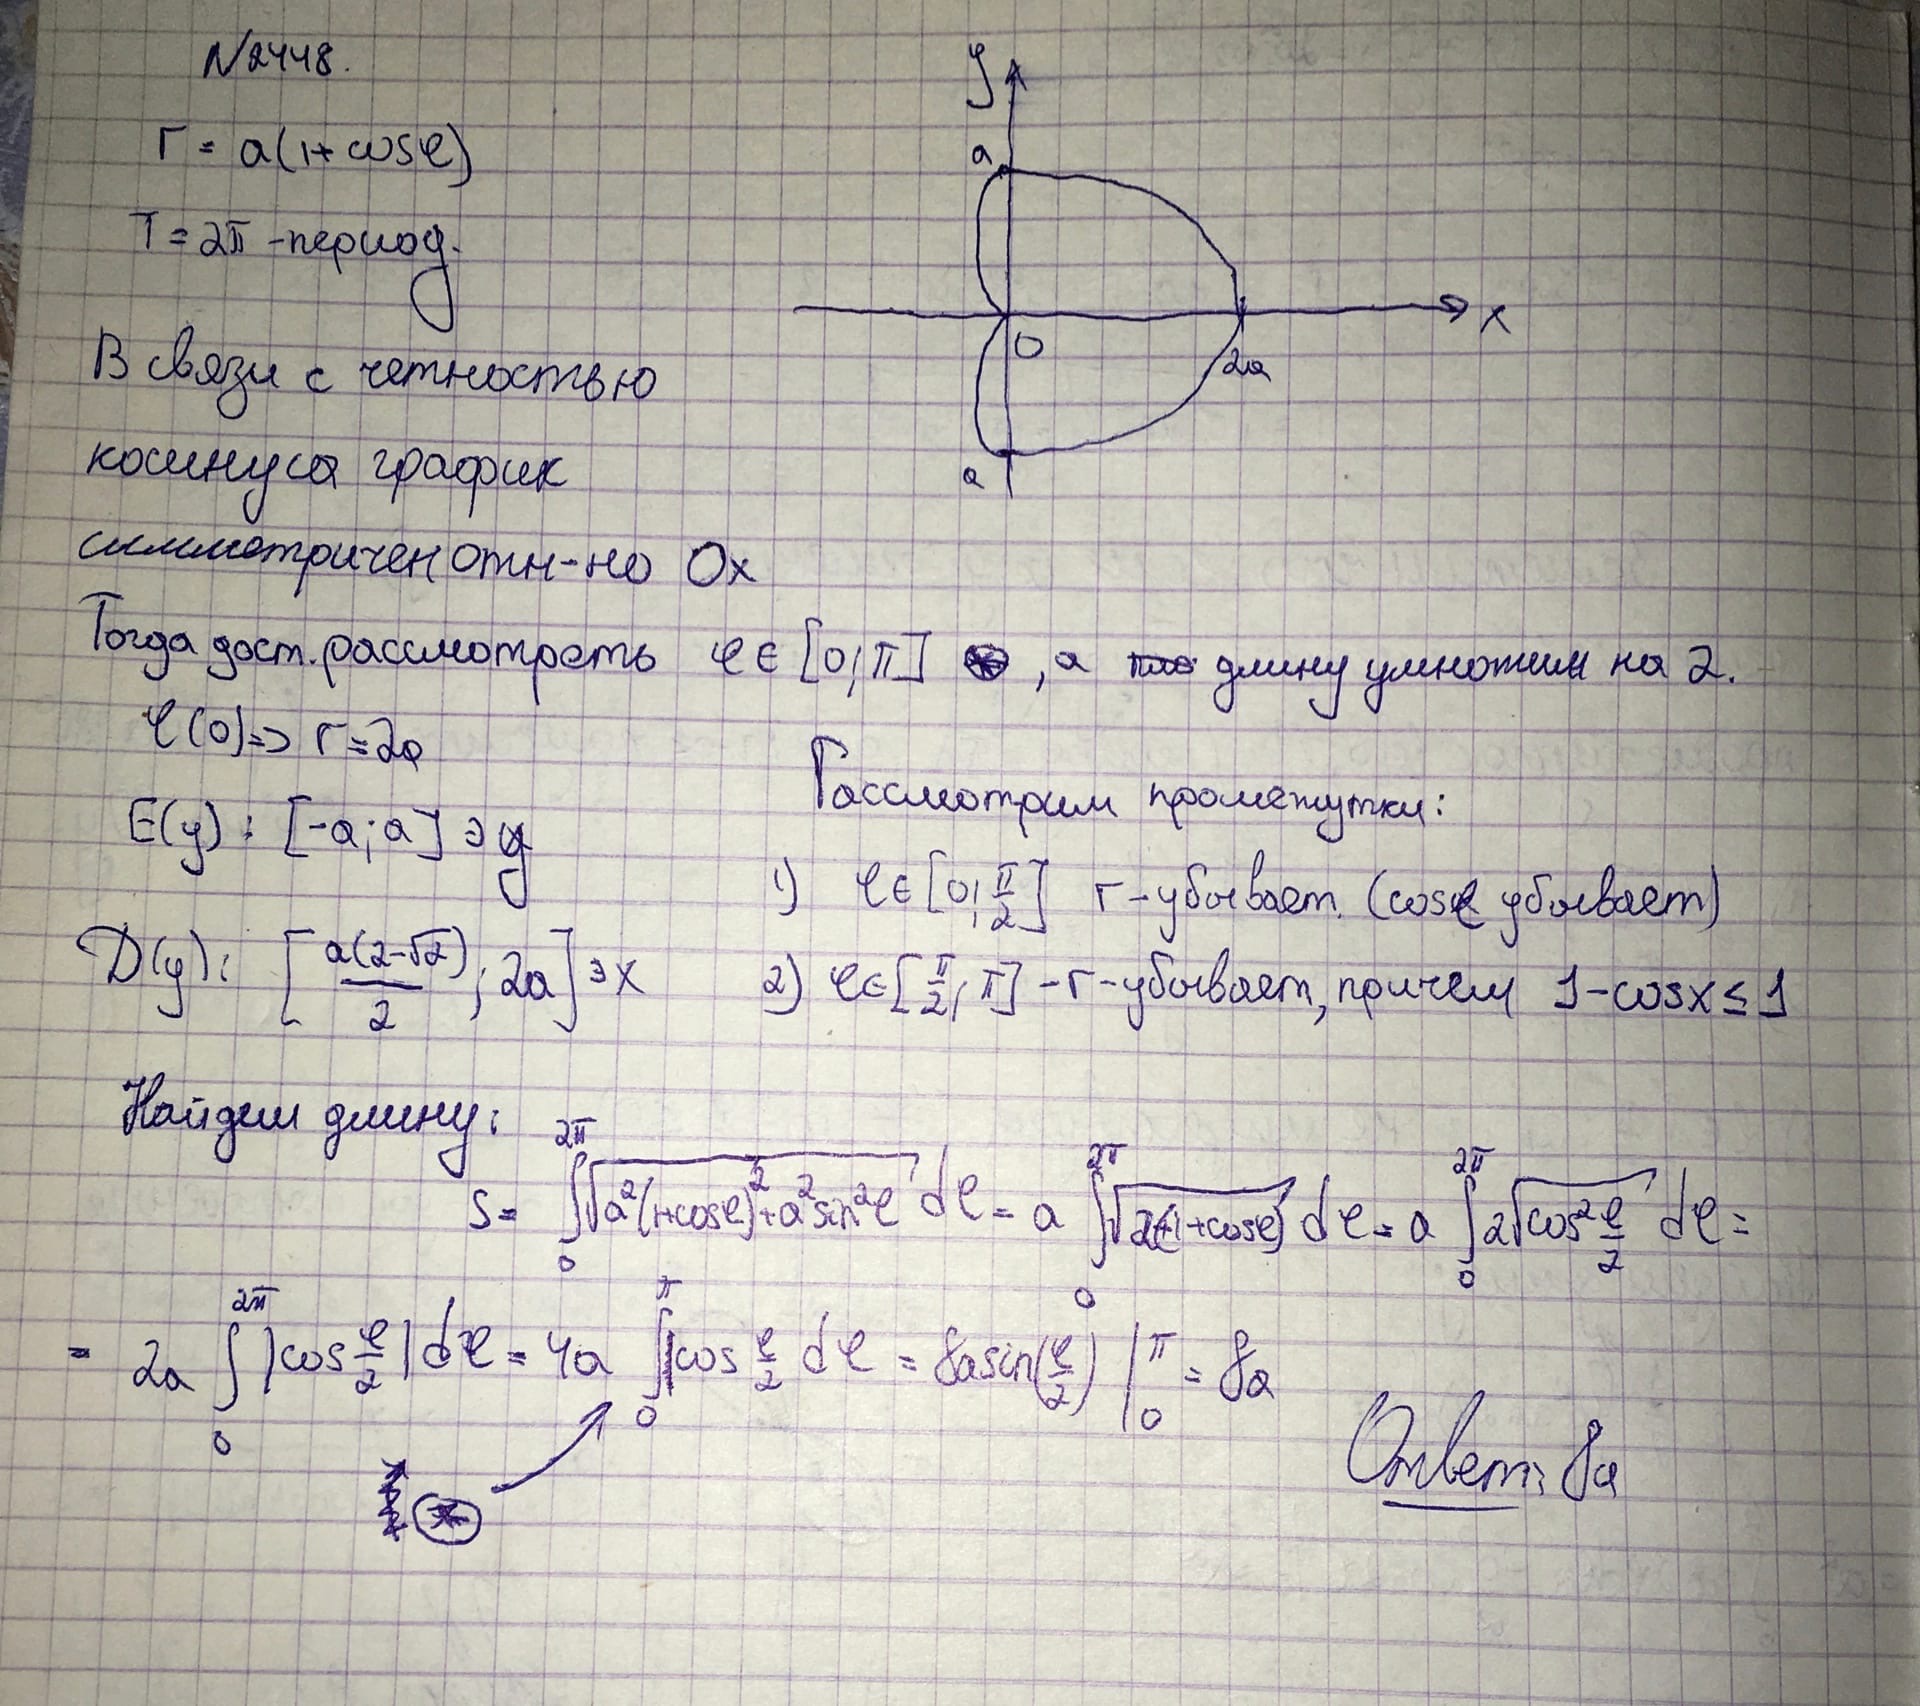 N2448.
r = a(1+cosφ)
T = 2π - период.
В связи с четностью
косинуса график
симметричен отн-но Ox
y
a
O
2a
x
a
Тогда дост. рассмотреть φ∈[0;π] , а длину умножим на 2.
φ(0) => r = 2a
E(y): [-a; a] ∋ y
D(y): [a(2-√2)/2; 2a] ∋ x
Рассмотрим промежутки:
1) φ∈[0; π/2] r - убывает. (cosφ убывает)
2) φ∈[π/2; π] - r - убывает, причем 1-cosx ≤ 1
Найдем длину:
S = ∫₀^2π √(a²(1+cosφ)² + a² sin²φ) dφ = a ∫₀^2π √(2(1+cosφ)) dφ = a ∫₀^2π 2√(cos² φ/2) dφ =
= 2a ∫₀^2π |cos φ/2| dφ = 4a ∫₀^π cos φ/2 dφ = 8a sin(φ/2) |₀^π = 8a
Ответ: 8a
*